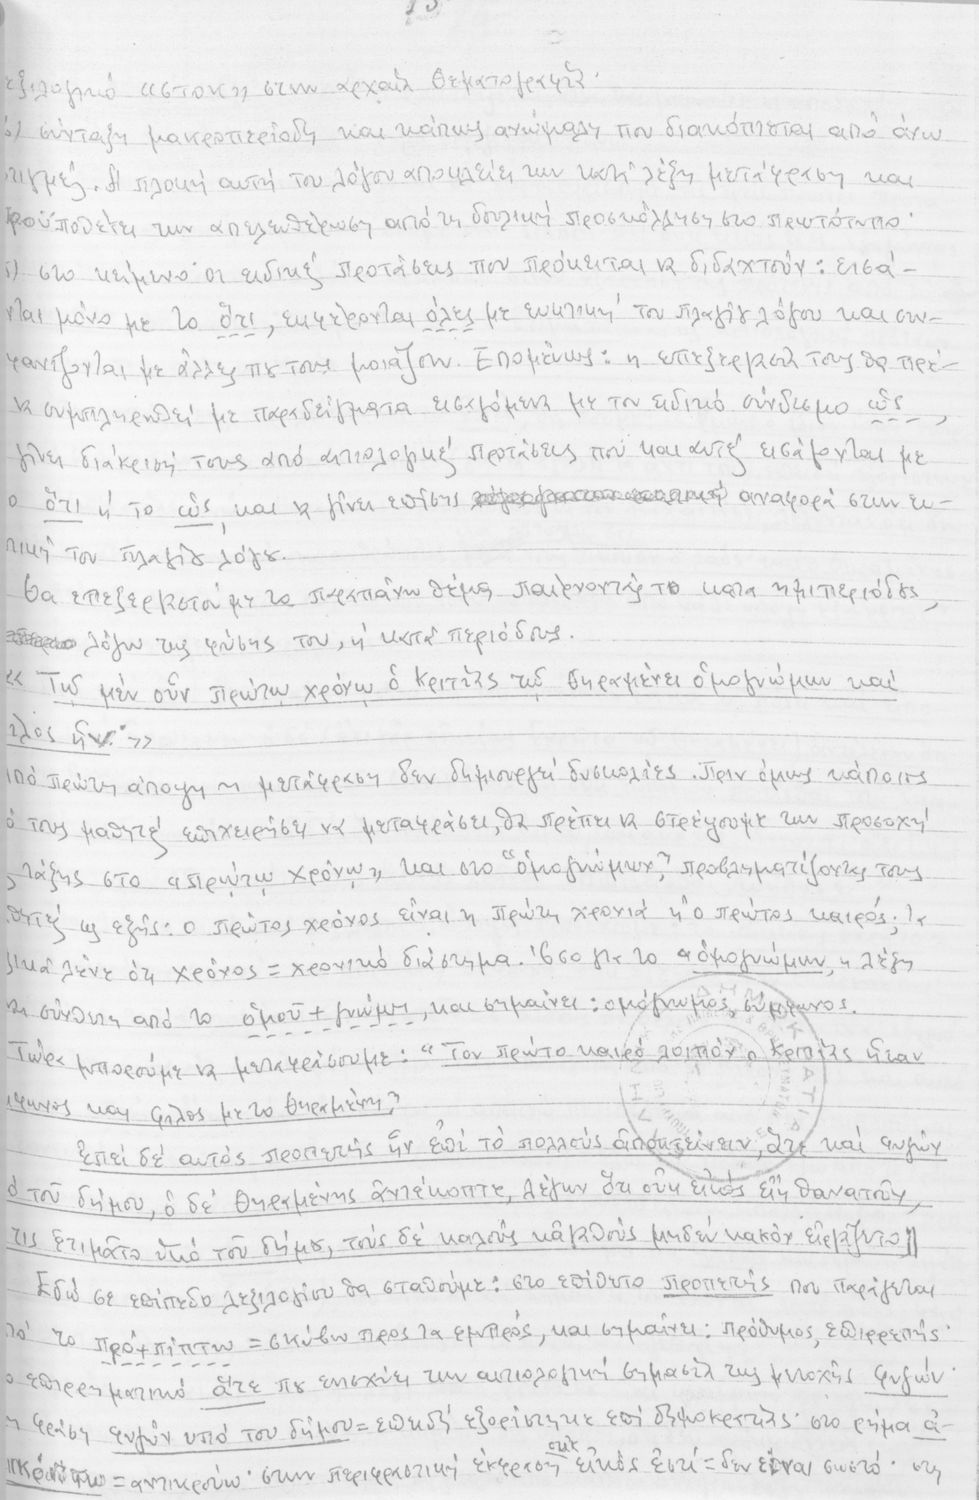 εξιλογικό «στοκ» στην αρχαία θεματογραφία·
) σύνταξη μακροπερίοδη και κάπως ανώμαλη που διακόπτεται από άνω
τιγμές. Η πλοκή αυτή του λόγου αποκλείει την κατά λέξη μετάφραση και
ροϋποθέτει την απελευθέρωση από τη δουλική προσκόλληση στο πρωτότυπο·
) στο κείμενο οι ειδικές προτάσεις που πρόκειται να διδαχτούν: εισά-
νται μόνο με το ὅτι, εκφέρονται όλες με ευκτική του πλαγίου λόγου και συν-
φανίζονται με άλλες που τους μοιάζουν. Επομένως: η επεξεργασία τους θα πρέ-
να συμπληρωθεί με παραδείγματα εισαγόμενα με τον ειδικό σύνδεσμο ὡς,
γίνει διάκρισή τους από αιτιολογικές προτάσεις που και αυτές εισάγονται με
ο ὅτι ή το ὡς, και να γίνει επίσης αναφορά στην ευ-
τική του πλαγίου λόγου.
Θα επεξεργαστούμε το παραπάνω θέμα παίρνοντάς το κατά ημιπεριόδους,
λόγω της φύσης του, ή κατά περιόδους.
«Τῷ μέν οὖν πρώτῳ χρόνῳ ὁ Κριτίας τῷ Θηραμένει ὁμογνώμων καί
ίλος ἦν·»
από πρώτη άποψη η μετάφραση δεν δημιουργεί δυσκολίες. Πριν όμως κάποιος
ό τους μαθητές επιχειρήσει να μεταφράσει, θα πρέπει να στρέψουμε την προσοχή
ς τάξης στο «πρώτῳ χρόνῳ» και στο "ὁμογνώμων", προβληματίζοντας τους
θητές ως εξής: ο πρώτος χρόνος είναι η πρώτη χρονιά ή ο πρώτος καιρός;
ικά λένε ότι χρόνος = χρονικό διάστημα. Όσο για το «ὁμογνώμων, η λέξη
ναι σύνθετη από το ὁμοῦ + γνώμη, και σημαίνει: ομόγνωμος, σύμφωνος.
Τώρα μπορούμε να μεταφράσουμε: "Τον πρώτο καιρό λοιπόν ο Κριτίας ήταν
μφωνος και φίλος με το Θηραμένη"
Ἐπεί δέ αὐτός προπετής ἦν ἐπί τό πολλούς ἀποκτείνειν, ἅτε καί φυγών
ό τοῦ δήμου, ὁ δέ Θηραμένης ἀντέκοπτε, λέγων ὅτι οὐκ εἰκός εἴη θανατοῦν,
τις ἐτιμᾶτο ὑπό τοῦ δήμου, τούς δέ καλούς κἀγαθούς μηδέν κακόν εἰργάζετο»
Εδώ σε επίπεδο λεξιλογίου θα σταθούμε: στο επίθετο προπετής που παράγεται
πό το πρό + πίπτω = σκύβω προς τα εμπρός, και σημαίνει: πρόθυμος, επιρρεπής·
ο επιρρηματικό ἅτε που ενισχύει την αιτιολογική σημασία της μετοχής φυγών·
η φράση φυγών υπό του δήμου = επειδή εξορίστηκε επί δημοκρατίας· στο ρήμα ἀ-
= αντικρούω· στην περιφραστική έκφραση οὐκ εἰκός ἐστί = δεν είναι σωστό· στη